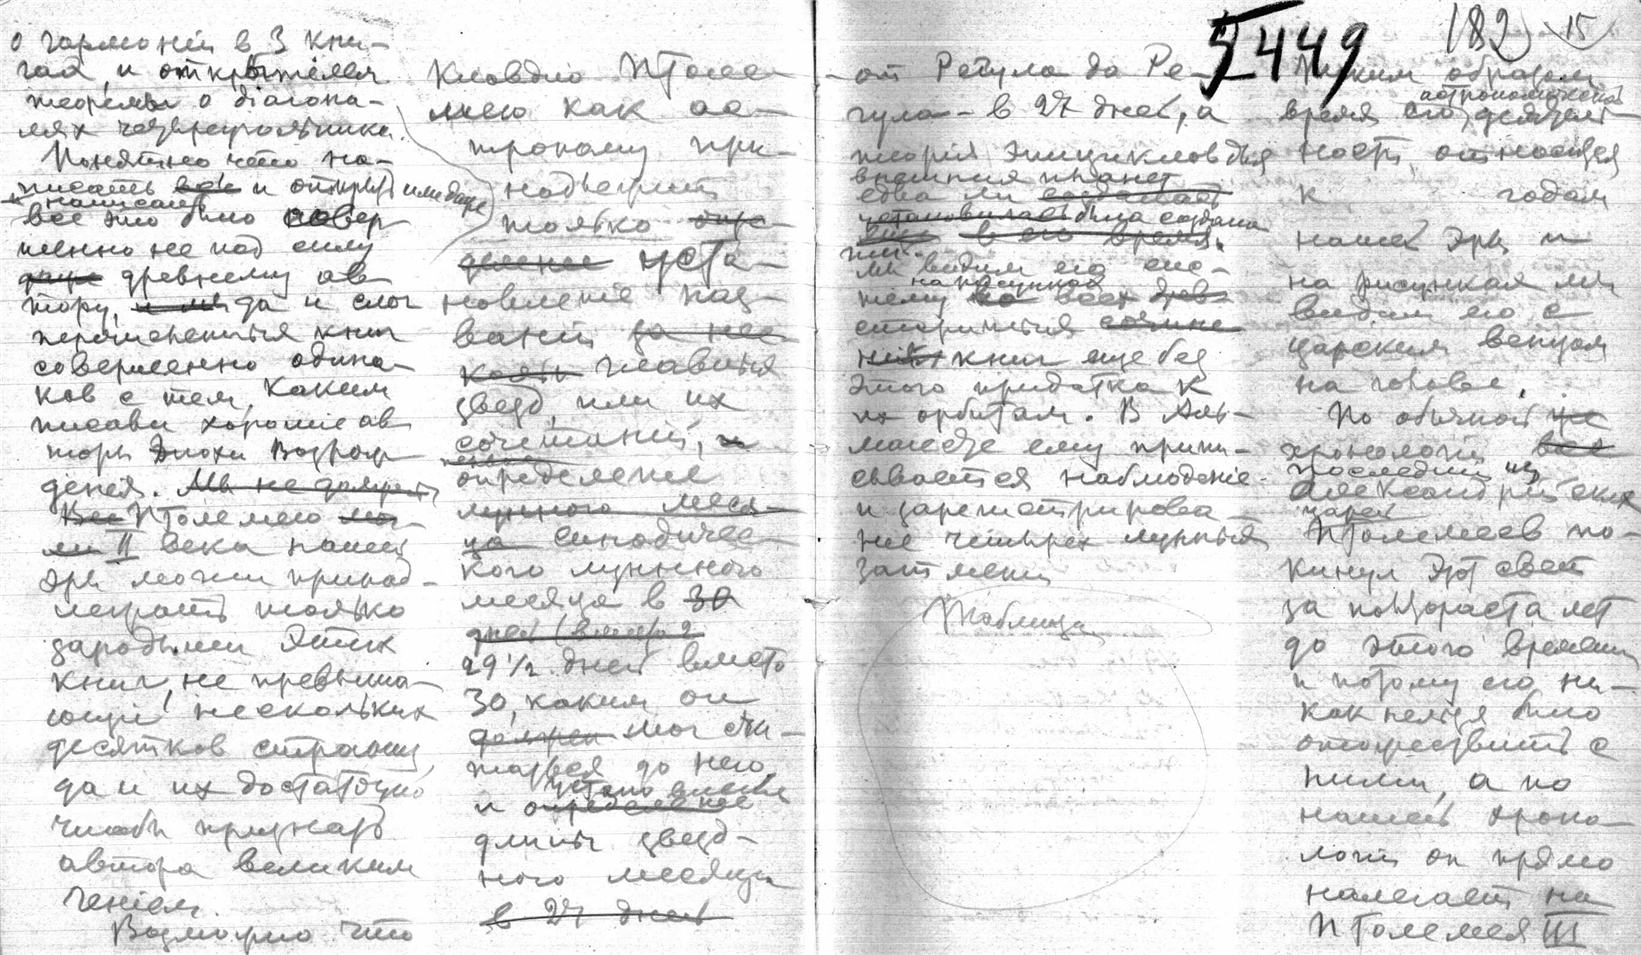 о гармонiи в 3 кни-
гах, и открытiем
теоремы о дiагона-
лях четвероугольника.
Понятно что на-
писать все и открыть или даже
написать
все это было совер
шенно не под силу
даже древнему ав
тору, да и слог
перечисленных книг
совершенно одина-
ков с тем, каким
писали хорошiе ав
торы Эпохи Возрож
денiя. Мы не должны
Все Птолемею
II века нашей
эры могли принад-
лежать только
зародыши этих
книг, не превыша-
ющiе нескольких
десятков страниц,
да и их достаточно
чтобы признать
автора великим
генiем.
Возможно что
Клавдiю Птоле
мею как ас-
троному при-
надлежит
только опре
деленiе уста-
новленiе наз-
ванiй за нес
колько главных
звезд, или их
сочетанiй, и
определенiе
лунного меся
ца синодичес-
кого лунного
месяца в 30
дней (вместо 2
29 1/2 дней вместо
30, каким он
должен мог счи-
таться до него,
установленiе
и определенiе
длины звезд-
ного месяца
в 27 дней
от Регула до Ре-
гула - в 27 дней, а
теорiя эпициклов для
внешних планет
едва ли создалась
установилась была создана
в его время.
Мы видим его сис-
на рисунках
тему во всех древ
старинных сочине
нiях книг еще без
этого придатка к
их орбитам. В Аль-
магесте ему припи-
сывается наблюденiе
и зарегистрирова-
нiе четырех лунных
затменiй
Таблица
5449
182
15
Таким образом
астрономической
время его деятель
ности, относится
к годам
нашей эры и
на рисунках мы
видим его с
царским венцом
на голове.
По обычной же
хронологiи все
последний из
Александрiйских
царей
Птолемеев по-
кинул этот свет
за полтораста лет
до этого времени
и потому его ни-
как нельзя было
отождествить с
ними, а по
нашей хроно-
логiи он прямо
налегает на
Птолемея III